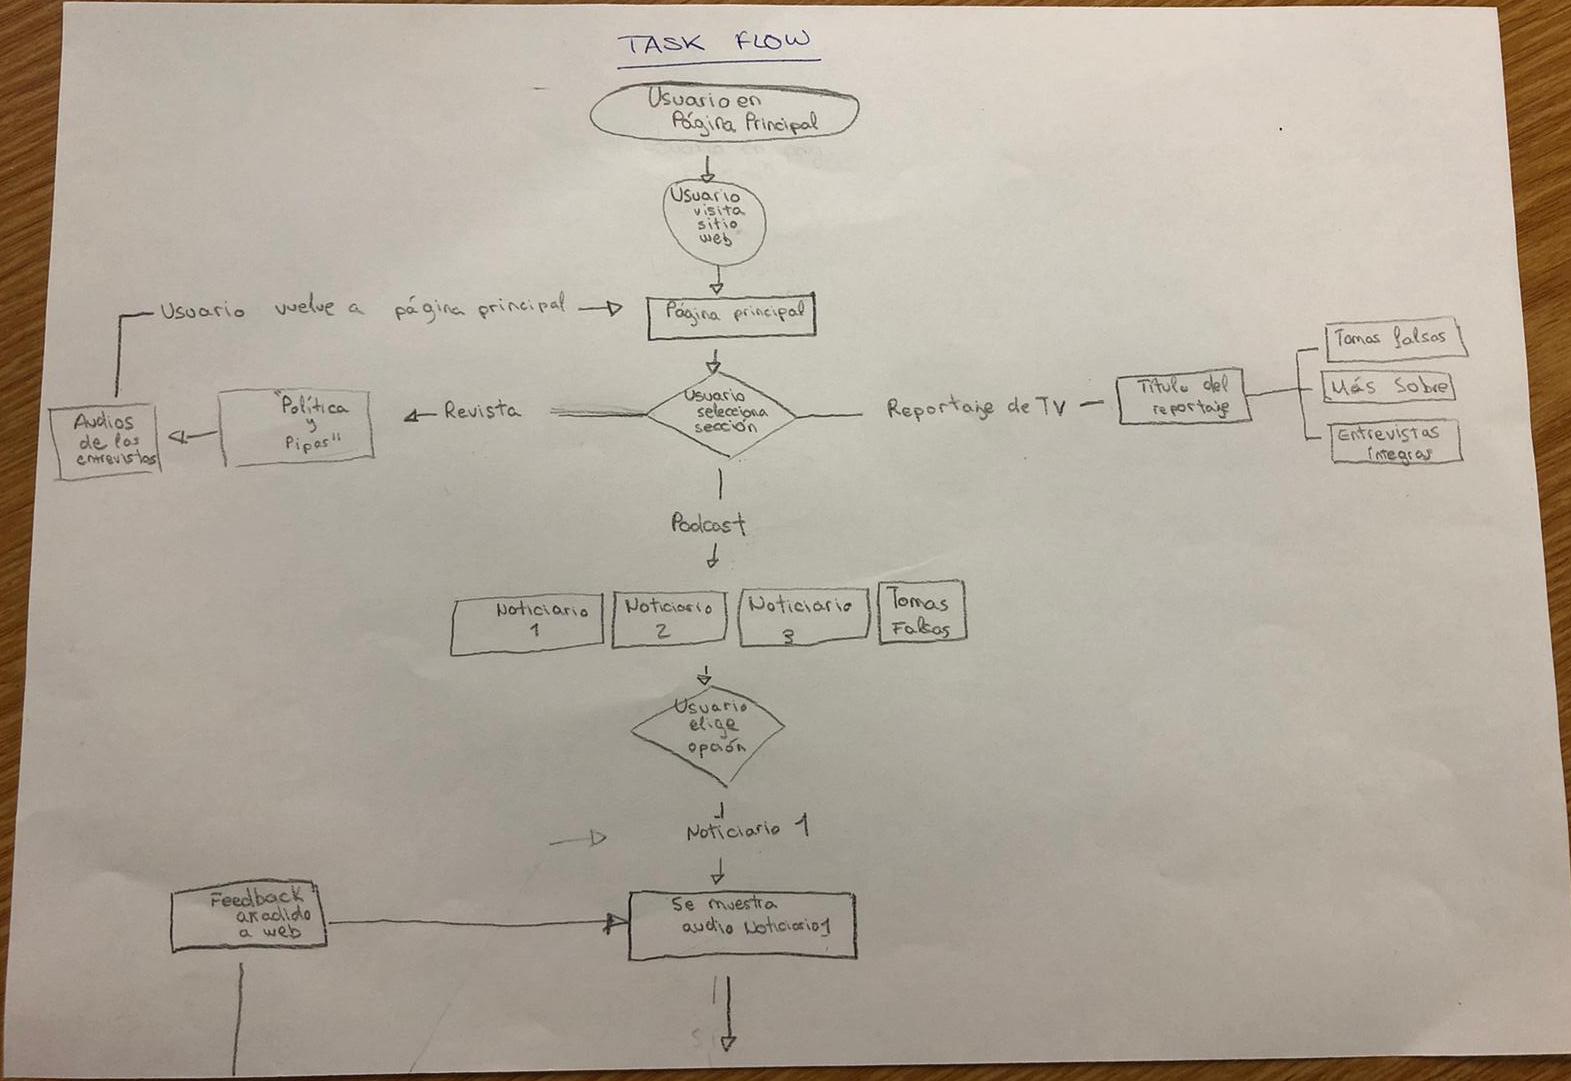 TASK FLOW
Usuario en
Página Principal
Usuario
visita
sitio
web
Usuario vuelve a página principal
Página principal
Audios
de las
entrevistas
"Política
y
Pipas"
Revista
Usuario
selecciona
sección
Reportaje de TV
Título del
reportaje
Tomas falsas
Más Sobre
Entrevistas
íntegras
Podcast
Noticiario
1
Noticiario
2
Noticiario
3
Tomas
Falsas
Usuario
elige
opción
Noticiario 1
Feedback
añadido
a web
Se muestra
audio Noticiario 1